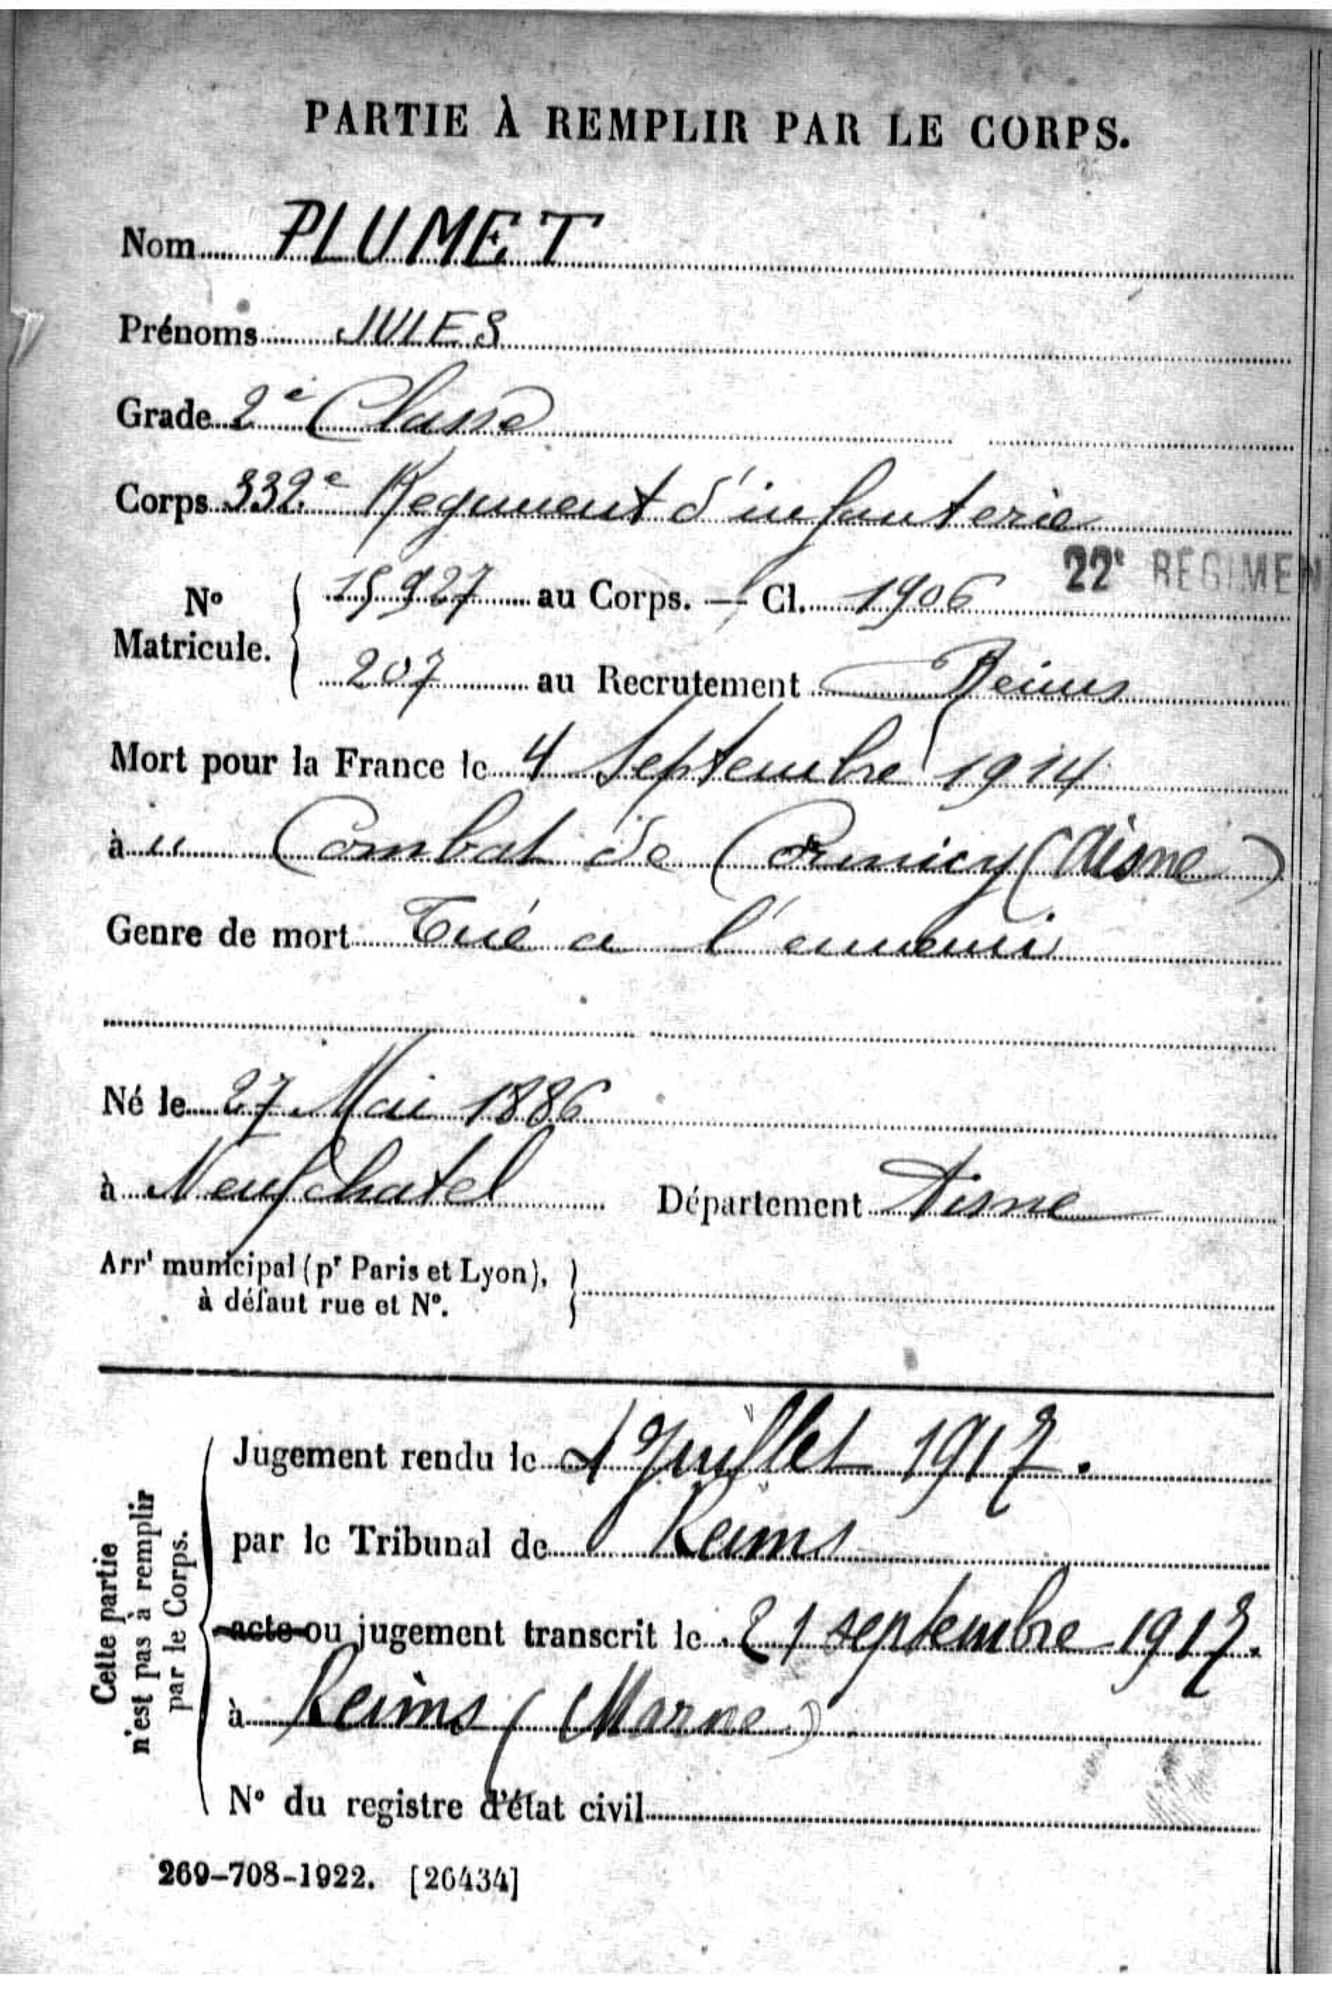 PARTIE À REMPLIR PAR LE CORPS.
Nom PLUMET
Prénoms JULES
Grade 2e Classe
Corps 332e Regiment d'infanterie
22e RÉGIMEN
No Matricule. 15927 au Corps. — Cl. 1906
207 au Recrutement Reims
Mort pour la France le 4 Septembre 1914
à u Combat de Cormicy (Aisne)
Genre de mort Tué a l'ennemi
Né le 27 Mai 1886
à Neufchatel Département Aisne
Arrt municipal (pr Paris et Lyon),
à défaut rue et No.
Cette partie
n'est pas à remplir
par le Corps.
Jugement rendu le Juillet 1917.
par le Tribunal de Reims
acte ou jugement transcrit le 21 septembre 1917.
à Reims (Marne)
No du registre d'état civil
269-708-1922. [26434]